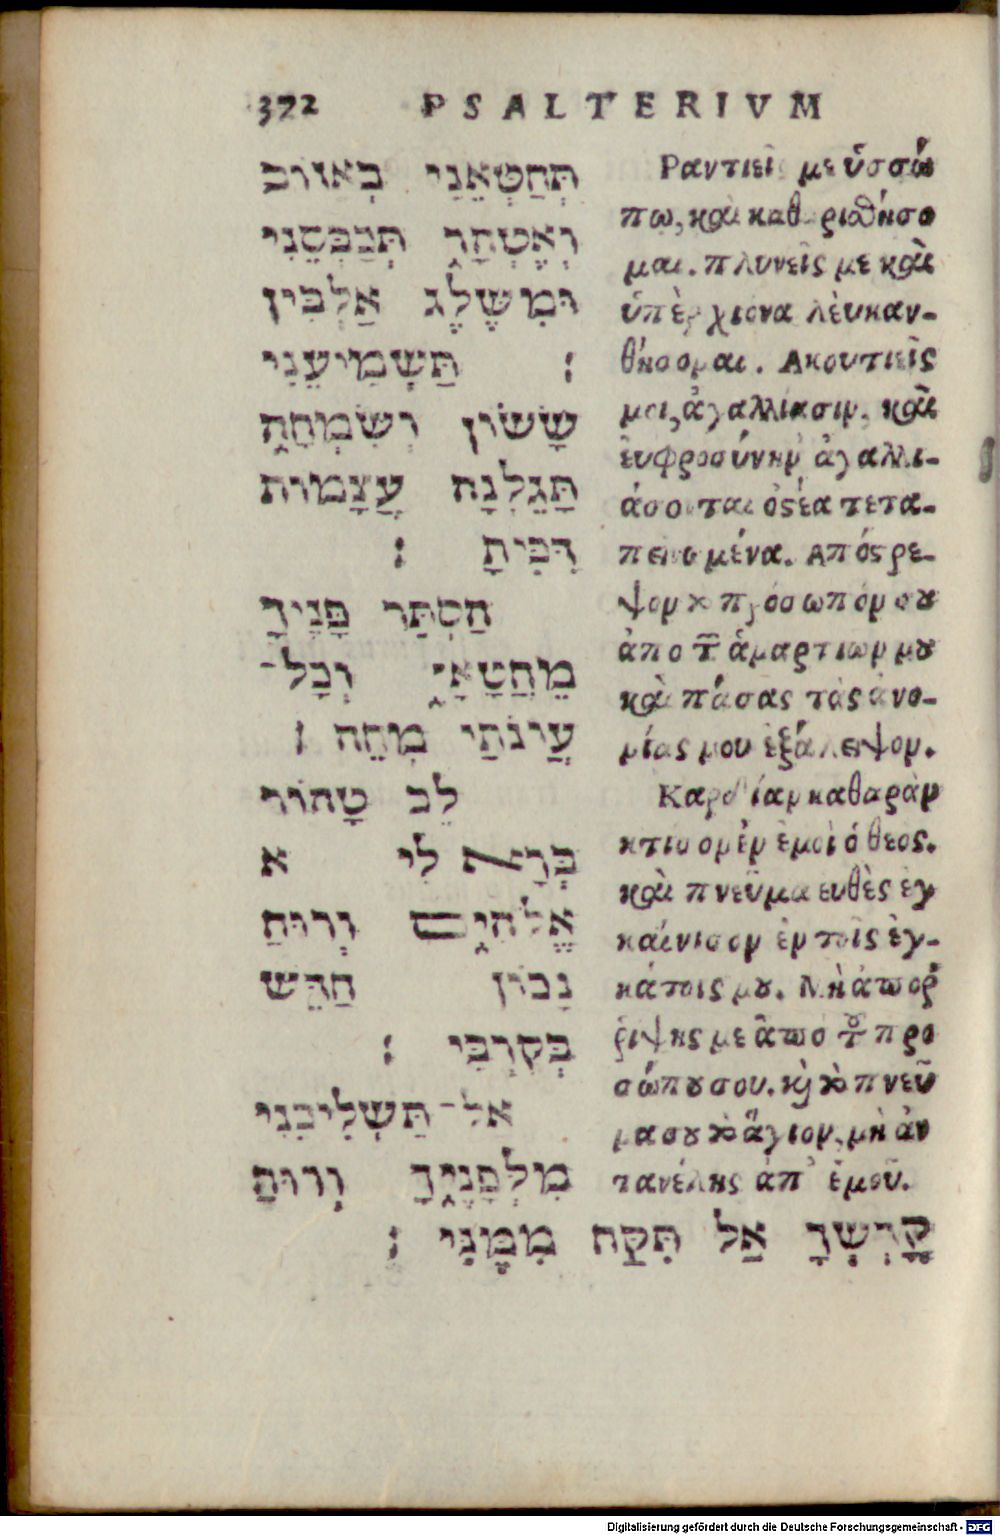 372 PSALTERIVM
תְּחַטְּאֵנִי בְאֵזוֹב
וְאֶטְהָר תְּכַבְּסֵנִי
וּמִשֶּׁלֶג אַלְבִּין
׃ תַּשְׁמִיעֵנִי
שָׂשׂוֹן וְשִׂמְחָה
תָּגֵלְנָה עֲצָמוֹת
דִּכִּיתָ ׃
הַסְתֵּר פָּנֶיךָ
מֵחֲטָאָי וְכָל־
עֲוֹנֹתַי מְחֵה ׃
לֵב טָהוֹר
בְּרָא לִי א
אֱלֹהִים וְרוּחַ
נָכוֹן חַדֵּשׁ
בְּקִרְבִּי ׃
אַל־תַּשְׁלִיכֵנִי
מִלְּפָנֶיךָ וְרוּחַ
קָדְשְׁךָ אַל תִּקַּח מִמֶּנִּי ׃
Ραντιεῖ με ὑσσώ
πω, καὶ καθαριθήσο
μαι. πλυνεῖς με καὶ
ὑπὲρ χιόνα λευκαν-
θήσομαι. Ακουτιεῖς
μοι, ἀγαλλίασιν, καὶ
ἐυφροσύνην ἀγαλλι-
άσονται ὀστέα τετα-
πεινωμένα. Απόστρε-
ψον τὸ πρόσωπόν σου
ἀπο τ῀ ἁμαρτιων μου
καὶ πάσας τὰς ἀνο-
μίας μου ἐξάλειψον.
Καρδίαν καθαρὰν
κτίσον ἐν ἐμοὶ ὁ θεος.
καὶ πνεῦμα ευθὲς ἐγ
καίνισον ἐν τοῖς ἐγ-
κάτοις μου. Μὴ ἀποῤ
ῥίψῃς με ἀπὸ τοῦ προ
σώπου σου. καὶ τὸ πνεῦ
μα σου τὸ ἅγιον, μὴ ἀν
τανέλῃς ἀπ᾽ ἐμοῦ.
Digitalisierung gefördert durch die Deutsche Forschungsgemeinschaft - DFG